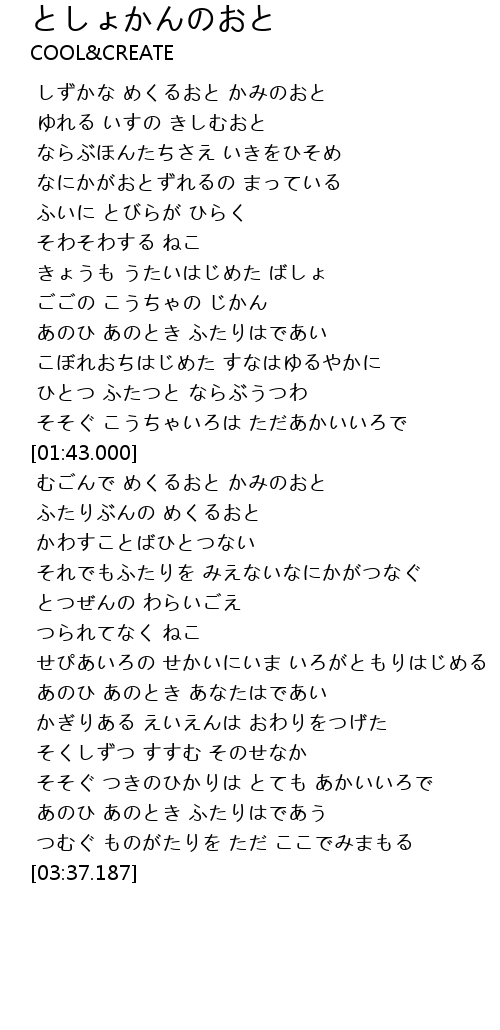 としょかんのおと
COOL&CREATE
しずかな めくるおと かみのおと
ゆれる いすの きしむおと
ならぶほんたちさえ いきをひそめ
なにかがおとずれるの まっている
ふいに とびらが ひらく
そわそわする ねこ
きょうも うたいはじめた ばしょ
ごごの こうちゃの じかん
あのひ あのとき ふたりはであい
こぼれおちはじめた すなはゆるやかに
ひとつ ふたつと ならぶうつわ
そそぐ こうちゃいろは ただあかいいろで
[01:43.000]
むごんで めくるおと かみのおと
ふたりぶんの めくるおと
かわすことばひとつない
それでもふたりを みえないなにかがつなぐ
とつぜんの わらいごえ
つられてなく ねこ
せぴあいろの せかいにいま いろがともりはじめる
あのひ あのとき あなたはであい
かぎりある えいえんは おわりをつげた
そくしずつ すすむ そのせなか
そそぐ つきのひかりは とても あかいいろで
あのひ あのとき ふたりはであう
つむぐ ものがたりを ただ ここでみまもる
[03:37.187]